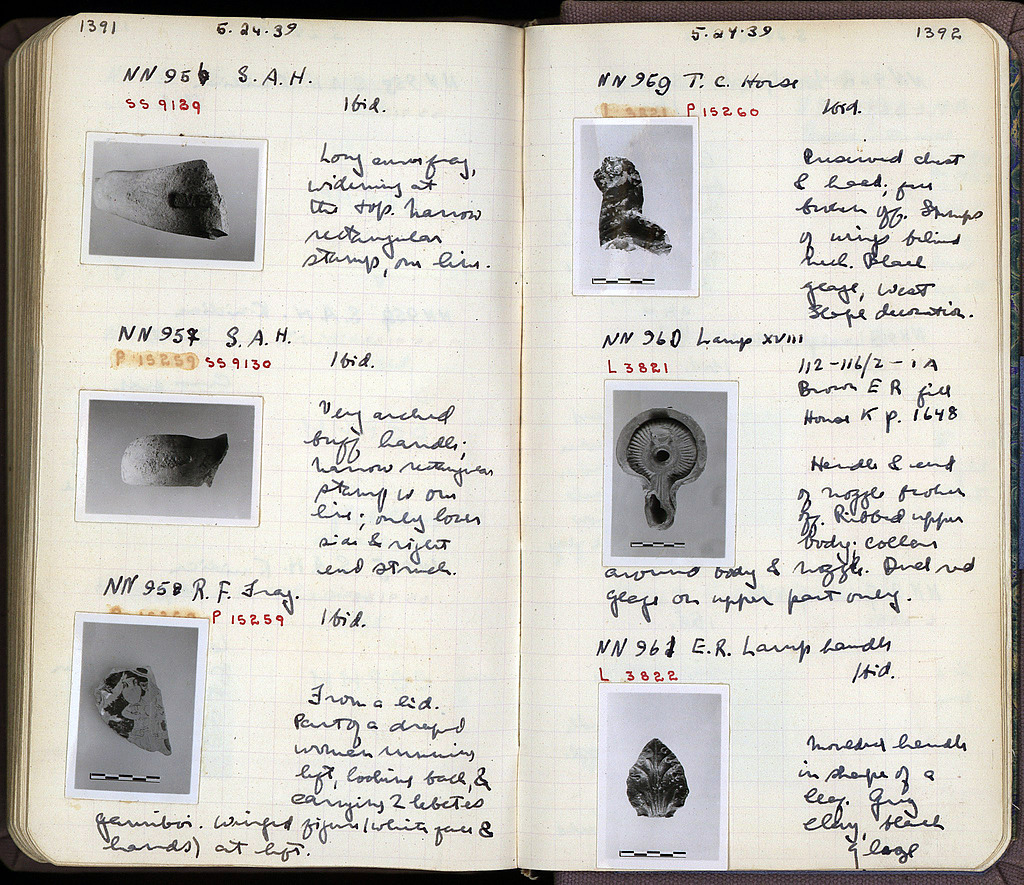 1391
5.24.39
NN 956 S.A.H.
SS 9129
Ibid.
Long frag,
widening at
the top. Narrow
rectangular
stamp, one line.
NN 957 S.A.H.
P 15259 SS 9130
Ibid.
Very arched
buff handle;
narrow rectangular
stamp w one
line; only lower
side & right
end struck.
NN 958 R.F. Frag.
P 15259
Ibid.
From a lid.
Part of a draped
woman running
left, looking back, &
carrying 2 lebetes
gamikoi. Winged figure (white face &
hands) at left.
5.24.39
1392
NN 959 T.C. Horse
P 15260
Ibid.
Preserved chest
& head; fore
broken off. Stumps
of wings behind
neck. Black
glaze, West
Slope decoration.
NN 960 Lamp XVIII
L 3821
112-116/2-1A
Brown E R fill
House K p. 1648
Handle & end
of nozzle broken
off. Ribbed upper
body; collar
around body & nozzle. Dull red
glaze on upper part only.
NN 961 E.R. Lamp handle
L 3822
Ibid.
Moulded handle
in shape of a
leaf. Gray
clay, black
glaze